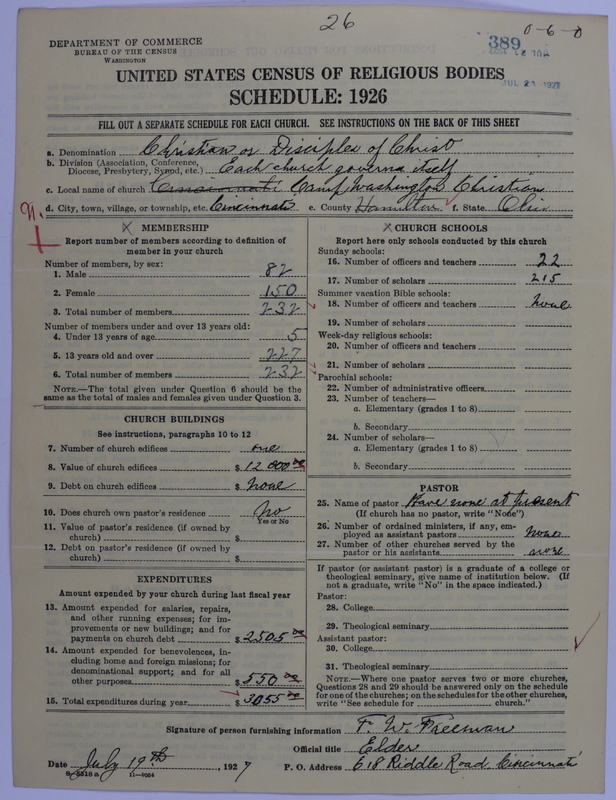 26
0-6-0
DEPARTMENT OF COMMERCE
BUREAU OF THE CENSUS
WASHINGTON
389
JUL 21 1927
UNITED STATES CENSUS OF RELIGIOUS BODIES
SCHEDULE: 1926
FILL OUT A SEPARATE SCHEDULE FOR EACH CHURCH. SEE INSTRUCTIONS ON THE BACK OF THIS SHEET
a. Denomination Christian or Disciples of Christ
b. Division (Association, Conference, Diocese, Presbytery, Synod, etc.) Each church governs itself
c. Local name of church Cincinnati Camp Washington Christian
d. City, town, village, or township, etc. Cincinnati e. County Hamilton f. State Ohio
X MEMBERSHIP
Report number of members according to definition of
member in your church
Number of members, by sex:
1. Male 82
2. Female 150
3. Total number of members 232
Number of members under and over 13 years old:
4. Under 13 years of age 5
5. 13 years old and over 227
6. Total number of members 232
NOTE.—The total given under Question 6 should be the
same as the total of males and females given under Question 3.
CHURCH BUILDINGS
See instructions, paragraphs 10 to 12
7. Number of church edifices one
8. Value of church edifices $ 12 000 00
9. Debt on church edifices $ none
10. Does church own pastor's residence No
Yes or No
11. Value of pastor's residence (if owned by
church) $
12. Debt on pastor's residence (if owned by
church) $
EXPENDITURES
Amount expended by your church during last fiscal year
13. Amount expended for salaries, repairs,
and other running expenses; for im-
provements or new buildings; and for
payments on church debt $ 2505 00
14. Amount expended for benevolences, in-
cluding home and foreign missions; for
denominational support; and for all
other purposes $ 550 00
15. Total expenditures during year $ 3055 00
X CHURCH SCHOOLS
Report here only schools conducted by this church
Sunday schools:
16. Number of officers and teachers 22
17. Number of scholars 215
Summer vacation Bible schools:
18. Number of officers and teachers None
19. Number of scholars
Week-day religious schools:
20. Number of officers and teachers
21. Number of scholars
Parochial schools:
22. Number of administrative officers
23. Number of teachers—
a. Elementary (grades 1 to 8)
b. Secondary
24. Number of scholars—
a. Elementary (grades 1 to 8)
b. Secondary
PASTOR
25. Name of pastor Have none at present
(If church has no pastor, write "None")
26. Number of ordained ministers, if any, em-
ployed as assistant pastors None
27. Number of other churches served by the
pastor or his assistants none
If pastor (or assistant pastor) is a graduate of a college or
theological seminary, give name of institution below. (If
not a graduate, write "No" in the space indicated.)
Pastor:
28. College
29. Theological seminary
Assistant pastor:
30. College
31. Theological seminary
NOTE.—Where one pastor serves two or more churches,
Questions 28 and 29 should be answered only on the schedule
for one of the churches; on the schedules for the other churches,
write "See schedule for church."
Signature of person furnishing information F. W. Freeman
Official title Elder
Date July 19th, 1927 P. O. Address 618 Riddle Road, Cincinnati
8-5518 a 11-9054